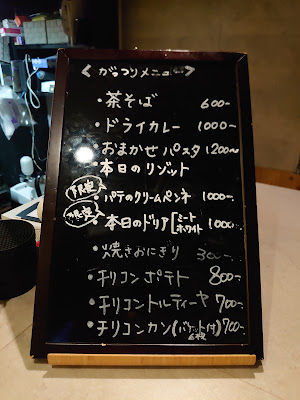 < がっつりメニュー >
・茶そば 600~
・ドライカレー 1000~
・おまかせパスタ 1200~
・本日のリゾット
限定 ・パテのクリームペンネ 1000~
限定 ・本日のドリア [ミート ホワイト 1000~
・焼きおにぎり 300~
・チリコンポテト 800~
・チリコントルティーヤ 700~
・チリコンカン(バケット付 6枚) 700~